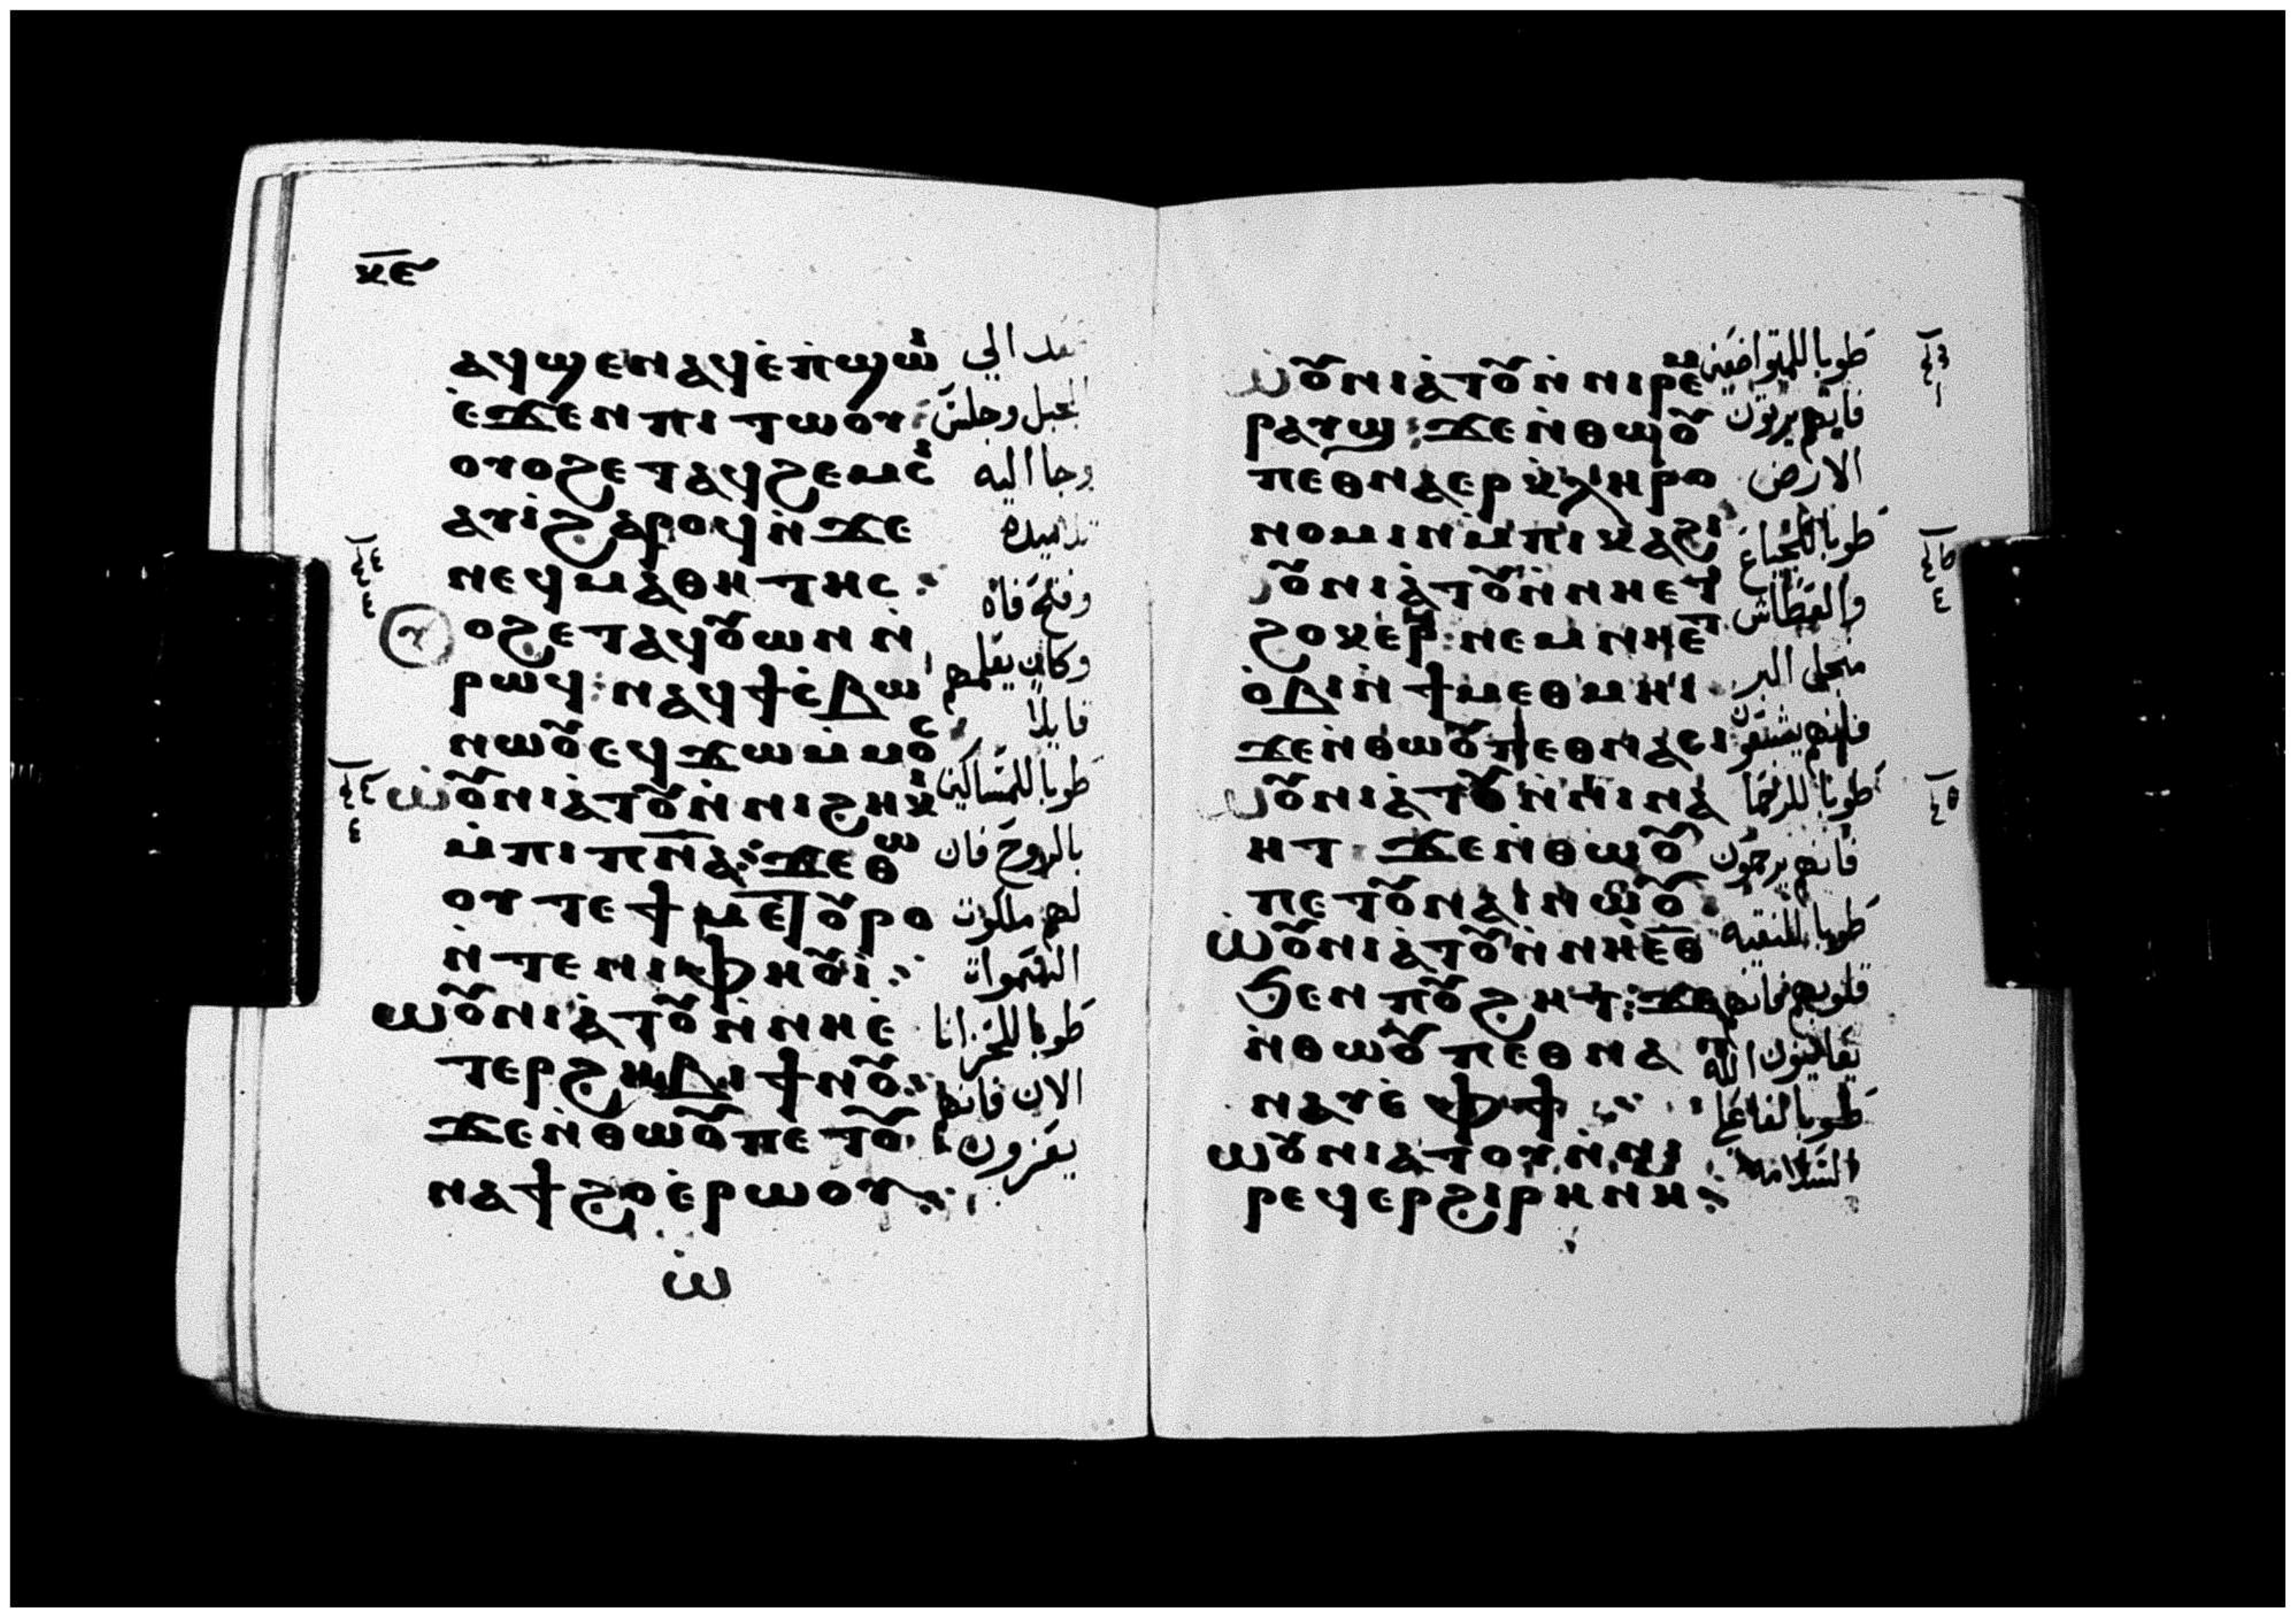 ⲕ̅ⲉ̅
ⲁϥϣⲉⲛⲁϥⲉ̀ⲡ̀ϣⲱⲓ̀
ⲉ̀ϫⲉⲛⲡⲓⲧⲱⲟⲩ
ⲟⲩⲟϩⲉⲧⲁϥϩⲉⲙⲥⲓ̀
ⲁⲩⲓ̀ϩⲁⲣⲟϥⲛ̀ϫⲉ
ⲛⲉϥⲙⲁ̀ⲑⲏⲧⲏⲥ :
ⲩ ⲟϩⲉⲧⲁϥⲟⲩⲱⲛⲛ̀
ⲣⲱϥ : ⲛⲁϥϯⲥ̀ⲃⲱ
ⲛⲱⲟⲩⲉϥϫⲱⲙ̀ⲙⲟⲥ
ⲱ̀ⲟⲩⲛⲓⲁ̀ⲧⲟⲩⲛ̀ⲛⲓϩⲏⲕⲓ
ⲙ̀ⲡⲓⲡⲛ̅ⲁ̅ : ϫⲉⲑⲱ
ⲟⲩⲧⲉϯⲙⲉⲧⲟⲩⲣⲟ
ⲛ̀ⲧⲉⲛⲓⲫⲏⲟⲩⲓ̀ :
ⲱ̀ⲟⲩⲛⲓⲁ̀ⲧⲟⲩⲛ̀ⲛⲏⲉ̀
ⲧⲉⲣϩⲏⲃⲓϯⲛⲟⲩ :
ϫⲉⲛ̀ⲑⲱⲟⲩⲡⲉⲧⲟⲩ
ⲛⲁϯϩⲟⲉ̀ⲣⲱⲟⲩ :
ⲱ̀
صعد الي
الجبل وجلس
وجا اليه
تلاميذه
وفتح فاه
وكان يعلمهم
قايلا
طوبا للمساكين
بالروح فان
لهم ملكوت
السموات
طوبا للحزانا
الان فانهم
يعزون
ⲱ̀ⲟⲩⲛⲓⲁ̀ⲧⲟⲩⲛ̀ⲛⲓⲣⲉⲙ
ⲣⲁⲩϣ : ϫⲉⲛ̀ⲑⲱⲟⲩ
ⲡⲉⲑⲛⲁⲉⲣⲕ̀ⲗⲏⲣⲟ
ⲛⲟⲙⲓⲛ̀ⲙⲡⲓⲕⲁϩⲓ
ⲱ̀ⲟⲩⲛⲓⲁ̀ⲧⲟⲩⲛ̀ⲛⲏⲉⲧ
ϩⲟⲕⲉⲣ : ⲛⲉⲙⲛⲏⲉⲧ
ⲟ̀ⲃⲓⲛ̀ϯⲙⲉⲑⲙⲏⲓ
ϫⲉⲛ̀ⲑⲱⲟⲩⲡⲉⲑⲛⲁⲥⲓ
ⲱ̀ⲟⲩⲛⲓⲁ̀ⲧⲟⲩⲛ̀ⲛⲓⲛⲁ
ⲏⲧ : ϫⲉⲛ̀ⲑⲱⲟⲩ
ⲡⲉⲧⲟⲩⲛⲁⲛⲁⲛⲱⲟⲩ
ⲱ̀ⲟⲩⲛⲓⲁ̀ⲧⲟⲩⲛ̀ⲛⲏⲉⲑ
ϧⲉⲛⲡⲟⲩϩⲏⲧ : ϫⲉ
ⲛ̀ⲑⲱⲟⲩⲡⲉⲑⲛⲁ
ⲛⲁⲩⲉ̀ⲫϯ :
ⲱ̀ⲟⲩⲛⲓⲁⲧⲟⲩⲛ̀ⲛⲓ
ⲣⲉϥⲉⲣϩⲓⲣⲏⲛⲏ :
طوبا للمتواضعين
فانهم يرتون
الارض
طوبا للجياع
والعطاش
من اجل البر
فانهم يشبعون
طوبا للرحما
فانهم يرحمون
طوبا للنقيه
قلوبهم فانهم
يعاينون الله
طوبا لفاعلي
السلامه